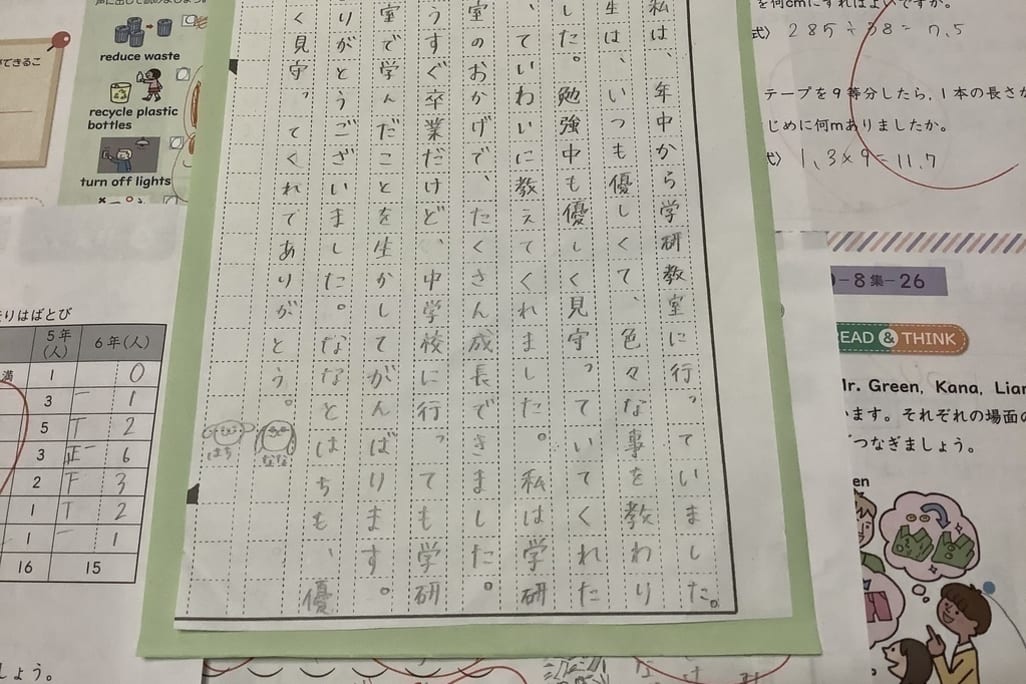 声に出して読みましょう。
reduce waste
recycle plastic
bottles
turn off lights
できるこ
私は、年中から学研教室に行っていました。
生は、いつも優しくて、色々な事を教わり
した。勉強中も優しく見守っていてくれた
、ていねいに教えてくれました。私は学研
室のおかげで、たくさん成長できました。
うすぐ卒業だけど、中学校に行っても学研
室で学んだことを生かしてがんばります。
りがとうございました。ななとはちも、優
く見守ってくれてありがとう。
なな
はち
を何cmにすればよいですか。
式) 285÷38=7.5
テープを9等分したら,1本の長さが
じめに何mありましたか。
式) 1.3×9=11.7
りはばとび
5年(人) 6年(人)
満 1 0
3 一 1
5 丅 2
3 正一 6
2 下 3
1 丅 2
1 一 1
16 15
しょう。
-8集-26
EAD & THINK
Mr. Green, Kana, Lian
います。それぞれの場面の
つなぎましょう。
en